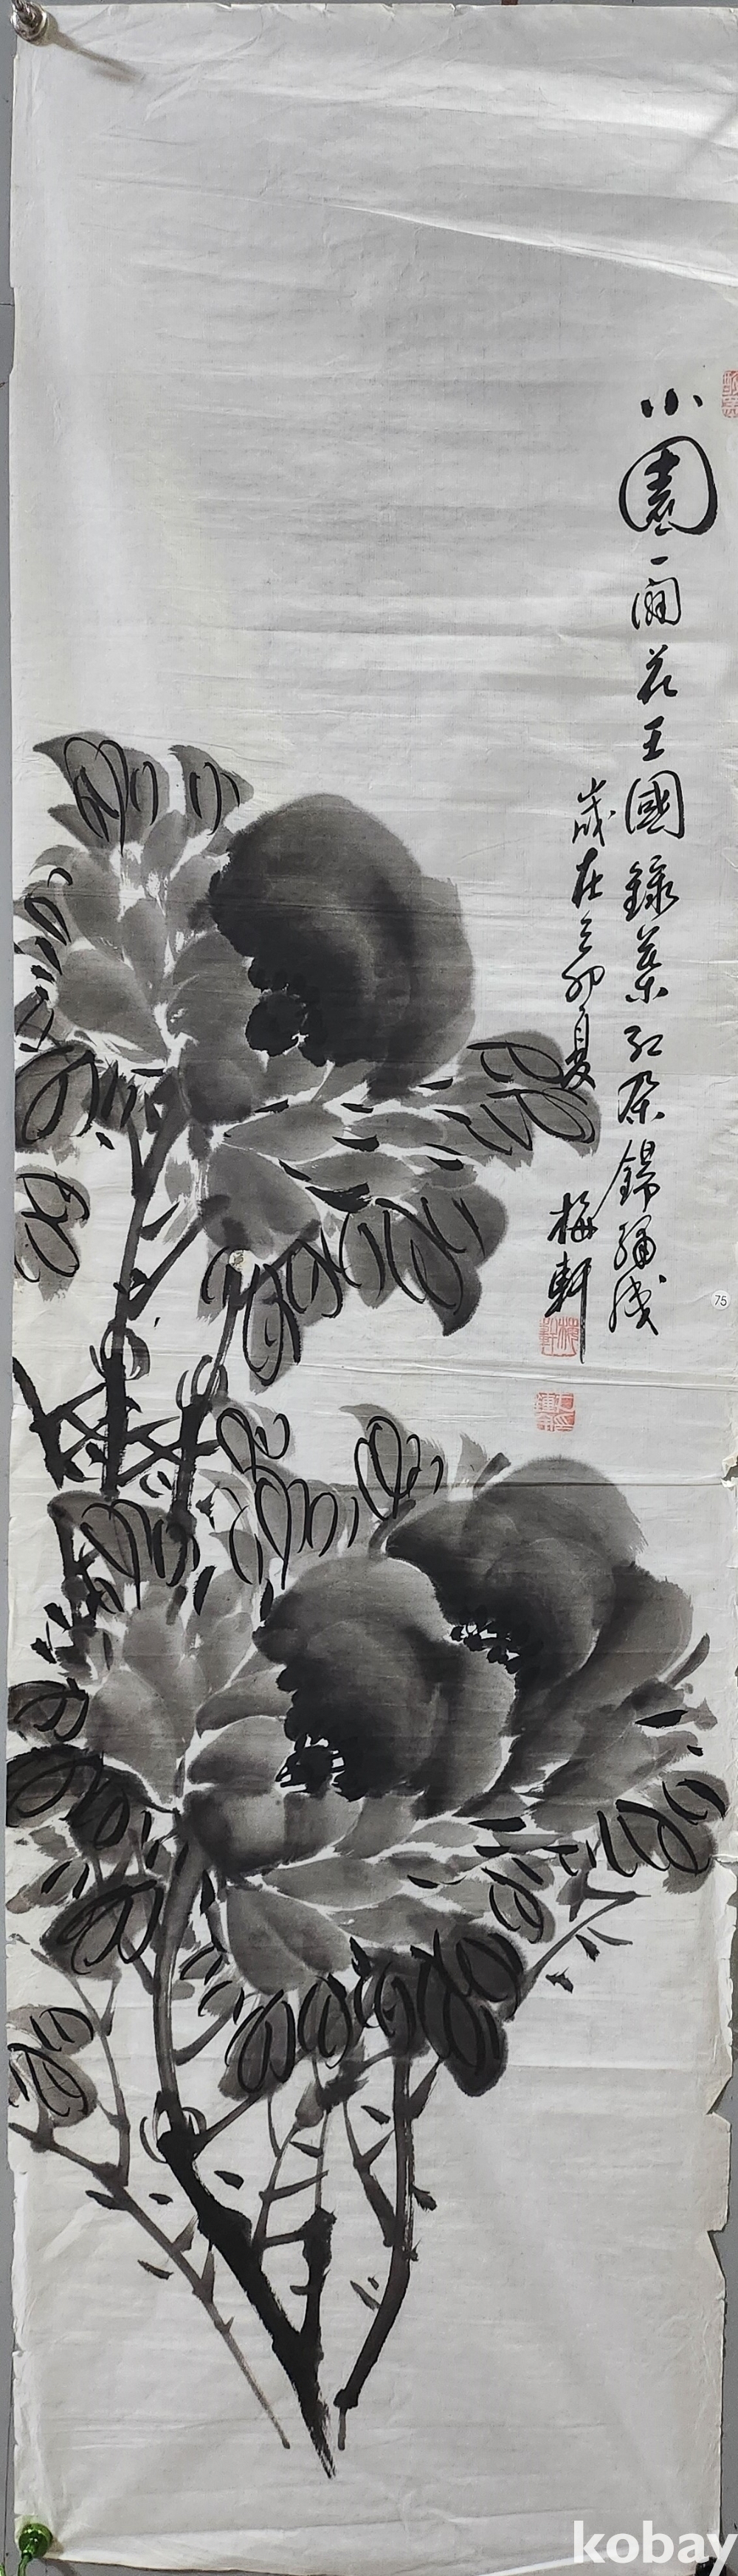 小園一開花王國錄葉紅朶錦繡成
歲在乙卯夏
梅軒
75
kobay